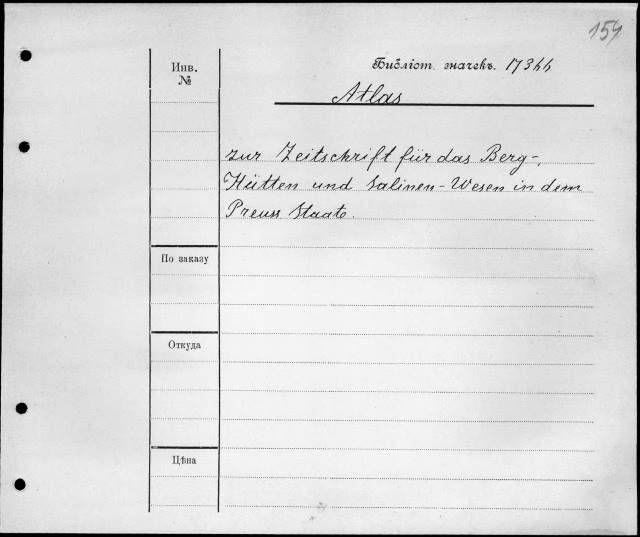 154
Инв. №
Библіот. значекъ. 17344
Atlas
zur Zeitschrift für das Berg-,
Hütten und Salinen-Wesen in dem
Preuss Staate.
По заказу
Откуда
Цѣна